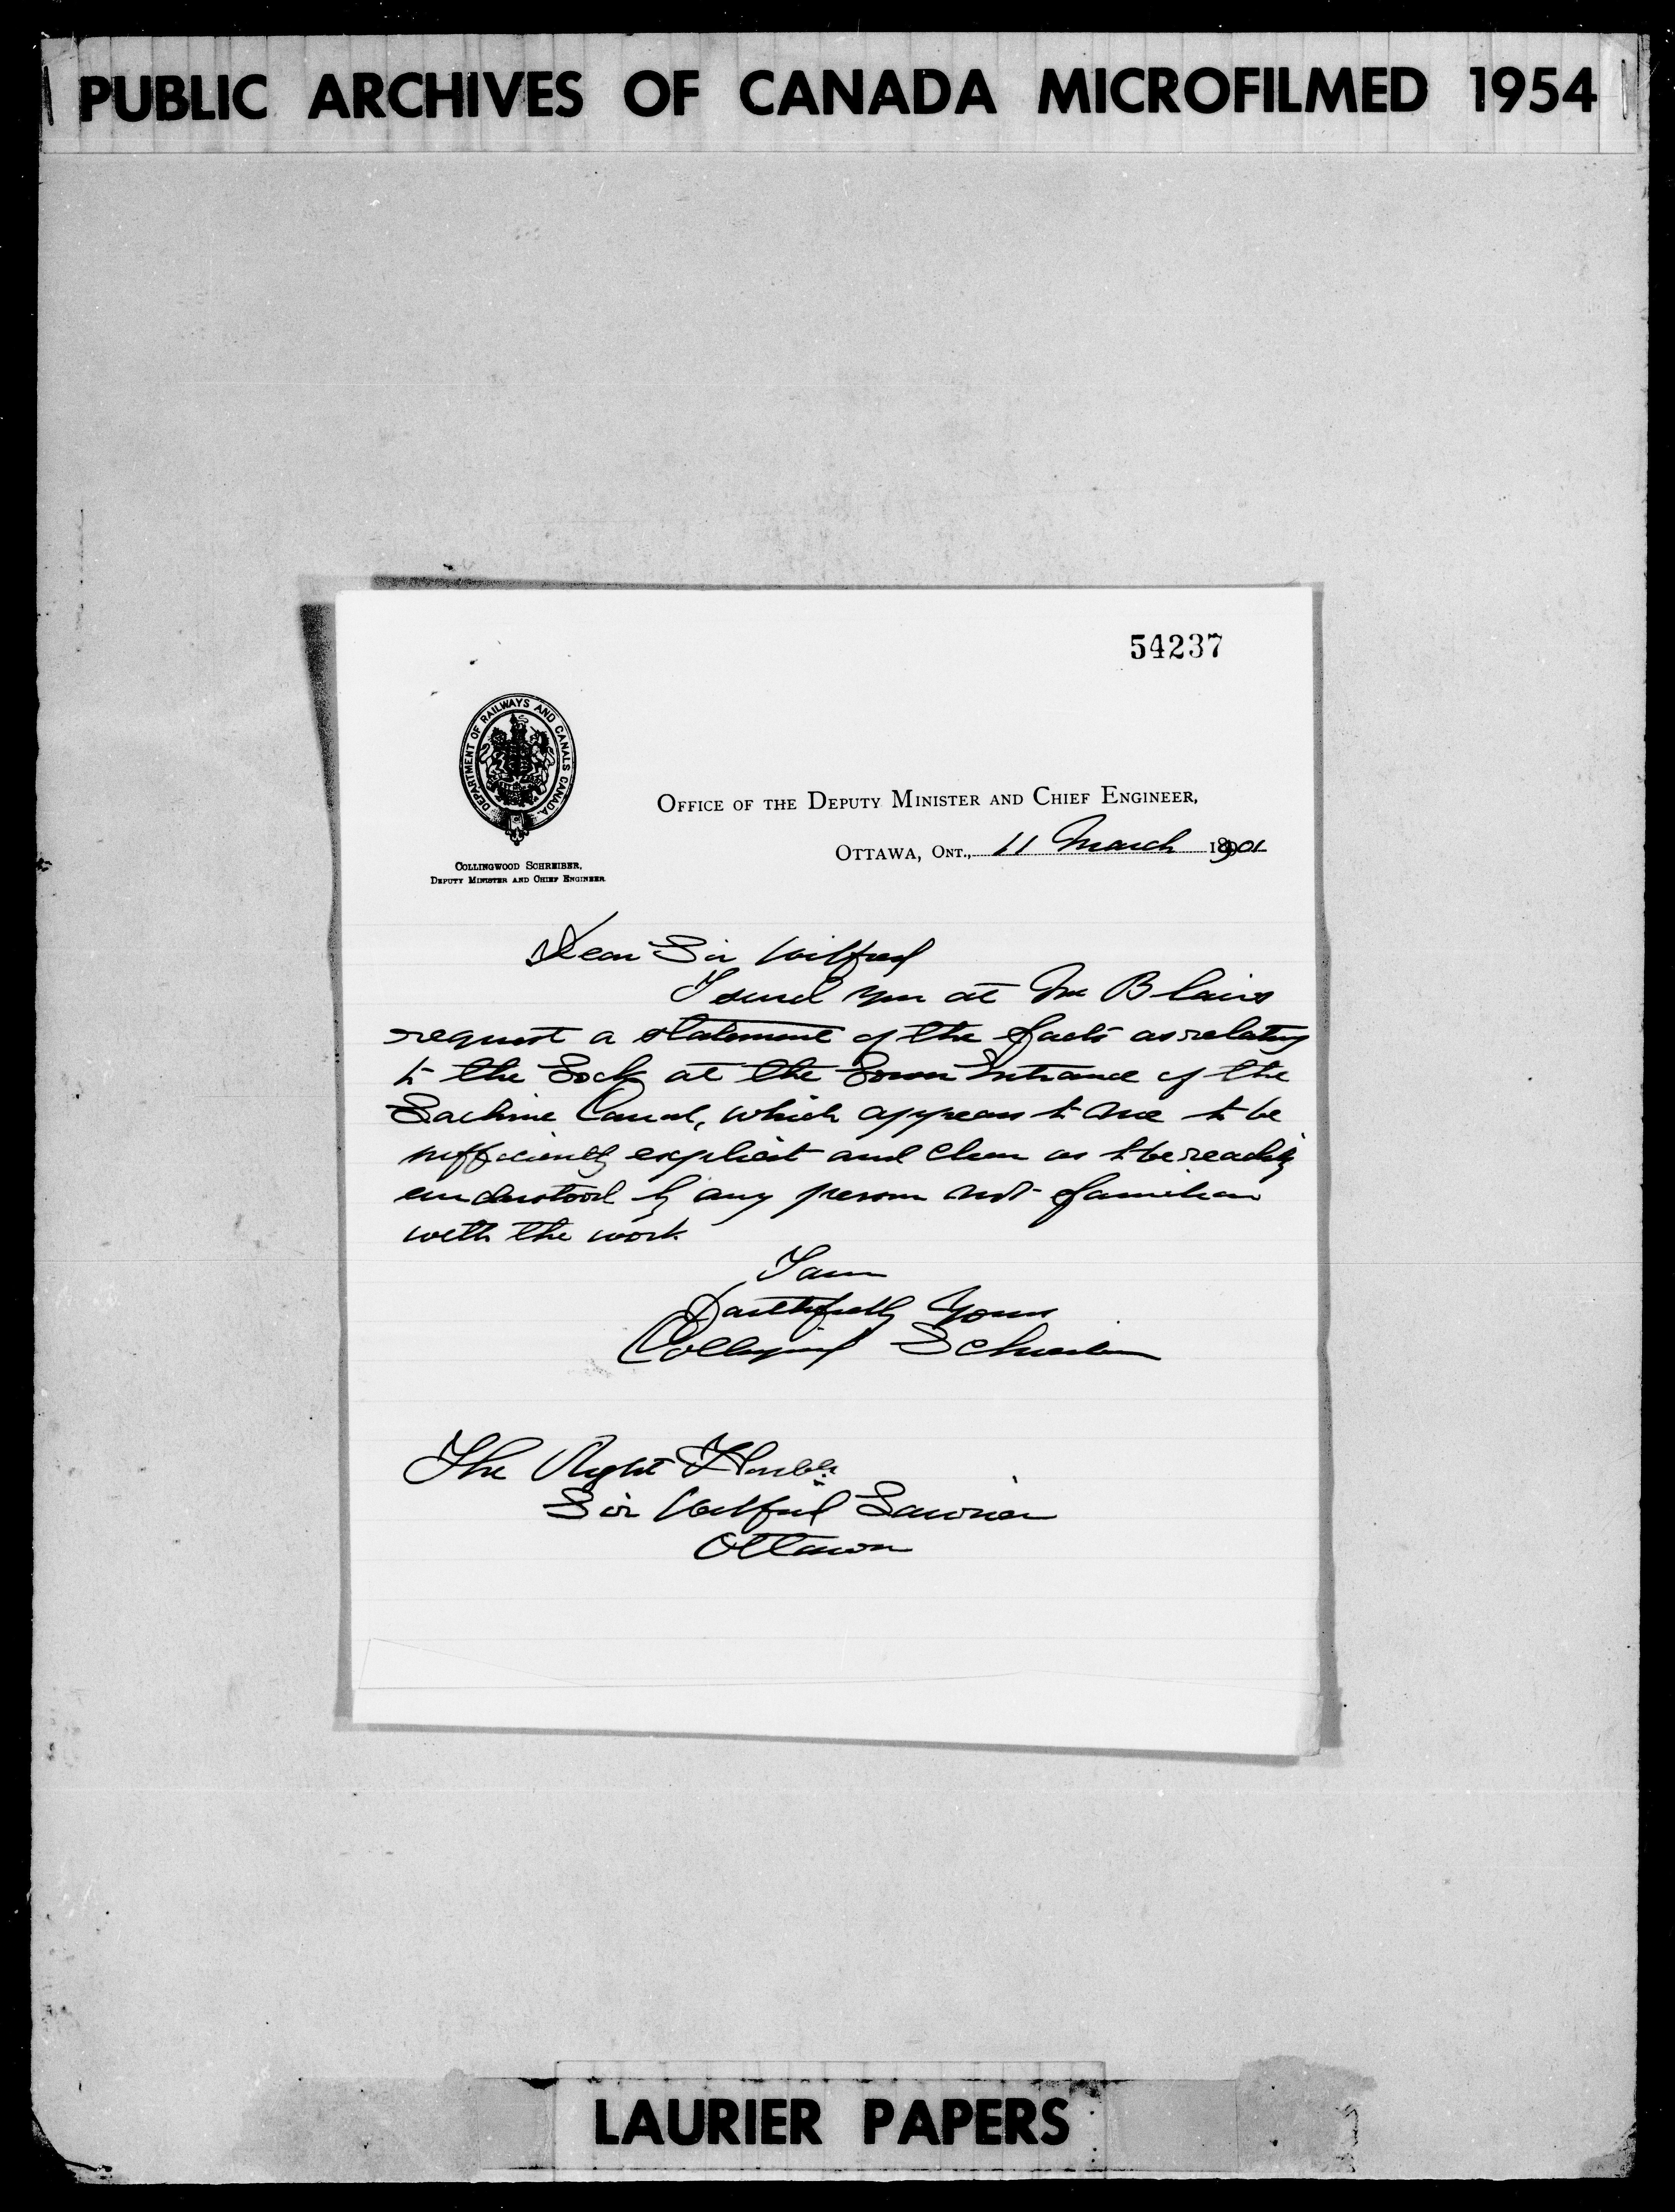 PUBLIC ARCHIVES OF CANADA MICROFILMED 1954
54237
DEPARTMENT OF RAILWAYS AND CANALS CANADA
OFFICE OF THE DEPUTY MINISTER AND CHIEF ENGINEER,
OTTAWA, ONT., 11 March 1901
COLLINGWOOD SCHREIBER,
DEPUTY MINISTER AND CHIEF ENGINEER
Dear Sir Wilfred
I send you at Mr Blairs
request a statement of the facts as relating
to the Lock at the Lower Entrance of the
Lachine Canal, which appears to me to be
sufficiently explicit and clear as to be readily
understood by any person not familiar
with the work
I am
Faithfully Yours
Collingwood Schreiber
The Right Honble
Sir Wilfred Laurier
Ottawa
LAURIER PAPERS